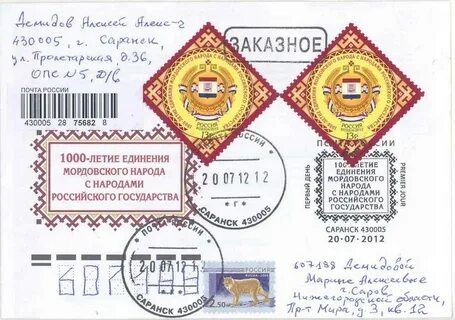 Демидов Алексей Алекс-ч
430005, г. Саранск,
ул. Пролетарская д.36,
ОПС №5, Д/В
ЗАКАЗНОЕ
ПОЧТА РОССИИ
430005 28 75682 8
1000-ЛЕТИЕ ЕДИНЕНИЯ
МОРДОВСКОГО НАРОДА
С НАРОДАМИ
РОССИЙСКОГО ГОСУДАРСТВА
РОССИЯ
РОССИЯ
ПОЧТА РОССИИ
20 07 12 12
* г *
САРАНСК 430005
ПОЧТА РОССИИ
ПЕРВЫЙ ДЕНЬ
1000-ЛЕТИЕ
ЕДИНЕНИЯ
МОРДОВСКОГО
НАРОДА
С НАРОДАМИ
РОССИЙСКОГО
ГОСУДАРСТВА
PREMIER JOUR
САРАНСК 430005
20-07-2012
ПОЧТА РОССИИ
20 07 12 12
САРАНСК 430005
РОССИЯ
2.50
607188 Демидовой
Марине Алексеевне
г. Саров
Нижегородской области,
Пр-т Мира, д.3, кв.12